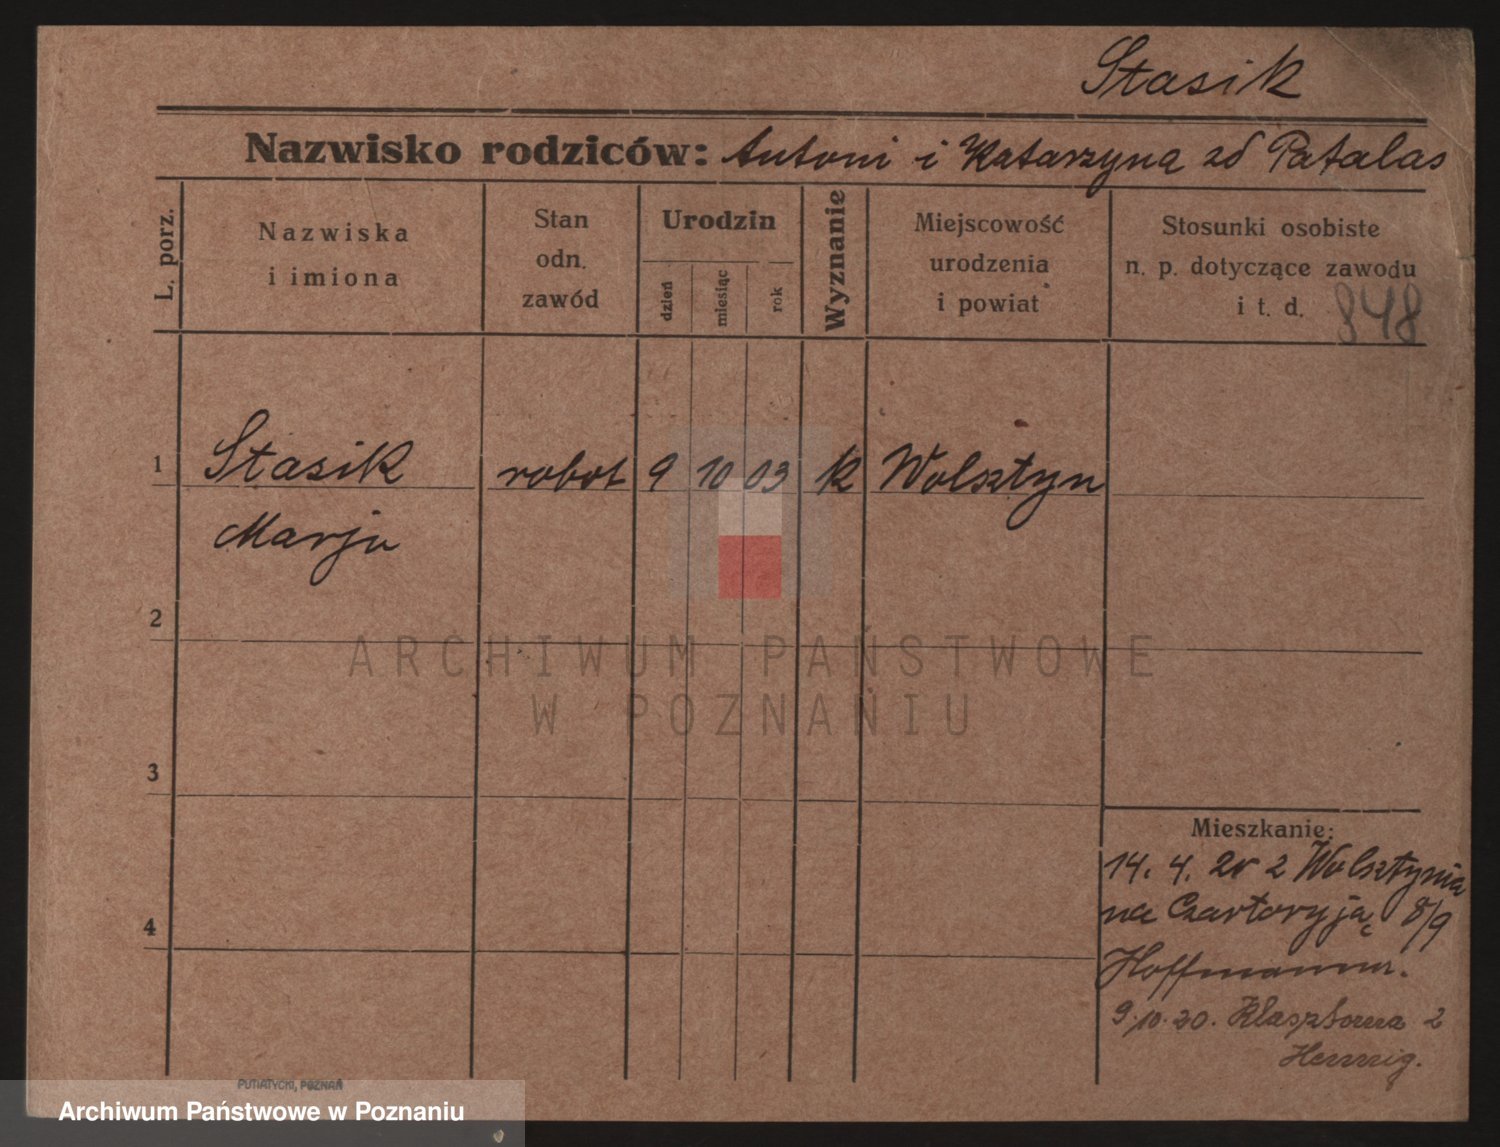 Stasik
Nazwisko rodziców: Antoni i Katarzyna zd Patalas
L. porz.
Nazwiska
i imiona
Stan
odn.
zawód
Urodzin
dzień
miesiąc
rok
Wyznanie
Miejscowość
urodzenia
i powiat
Stosunki osobiste
n. p. dotyczące zawodu
i t. d.
848
1 Stasik robot 9 10 03 k Wolsztyn
Marja
2
3
4
Mieszkanie:
14. 4. z Wolsztynia
na Czartoryją 8/9
9.10.20. 2
ARCHIWUM PAŃSTWOWE
W POZNANIU
PUTIATYCKI, POZNAŃ
Archiwum Państwowe w Poznaniu